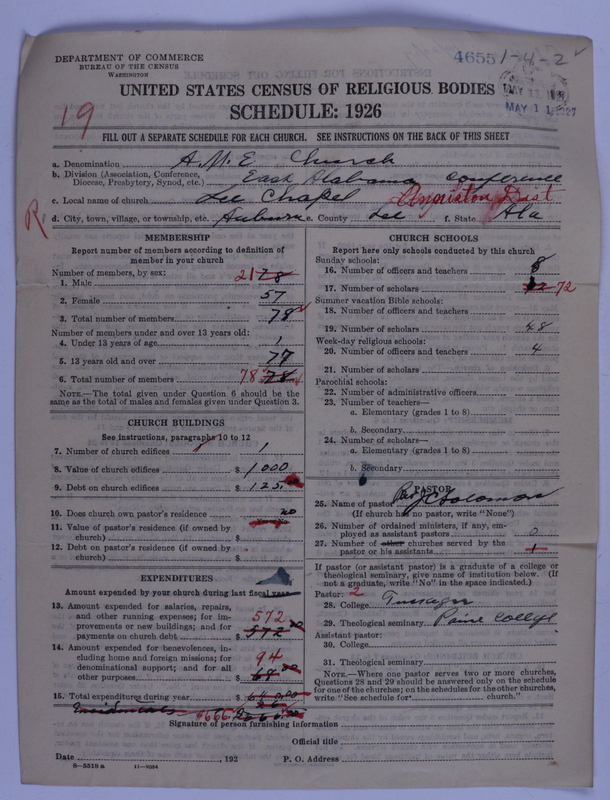 DEPARTMENT OF COMMERCE
BUREAU OF THE CENSUS
WASHINGTON
4655 1-4-2
MAY 11 1927
UNITED STATES CENSUS OF RELIGIOUS BODIES
SCHEDULE: 1926
19
FILL OUT A SEPARATE SCHEDULE FOR EACH CHURCH. SEE INSTRUCTIONS ON THE BACK OF THIS SHEET
a. Denomination A.M.E. Church
b. Division (Association, Conference, Diocese, Presbytery, Synod, etc.) East Alabama Conference
c. Local name of church Lee Chapel Anniston Dist
R
d. City, town, village, or township, etc. Auburn e. County Lee f. State Ala
MEMBERSHIP
Report number of members according to definition of
member in your church
Number of members, by sex:
1. Male 21 78
2. Female 57
3. Total number of members 78
Number of members under and over 13 years old:
4. Under 13 years of age 1
5. 13 years old and over 77
6. Total number of members 78 78
NOTE.—The total given under Question 6 should be
same as the total of males and females given under Question 3.
CHURCH BUILDINGS
See instructions, paragraphs 10 to 12
7. Number of church edifices 1
8. Value of church edifices $ 1000
9. Debt on church edifices $ 125
10. Does church own pastor's residence no
11. Value of pastor's residence (if owned by
church) $
12. Debt on pastor's residence (if owned by
church) $
EXPENDITURES
Amount expended by your church during last fiscal year
13. Amount expended for salaries, repairs,
and other running expenses; for im-
provements or new buildings; and for
payments on church debt $ 572 572
14. Amount expended for benevolences, in-
cluding home and foreign missions; for
denominational support; and for all
other purposes $ 94 68
15. Total expenditures during year $ 640.00
Incidentals 26
$666
CHURCH SCHOOLS
Report here only schools conducted by this church
Sunday schools:
16. Number of officers and teachers 8
17. Number of scholars 72
Summer vacation Bible schools:
18. Number of officers and teachers
19. Number of scholars 48
Week-day religious schools:
20. Number of officers and teachers 4
21. Number of scholars
Parochial schools:
22. Number of administrative officers
23. Number of teachers—
a. Elementary (grades 1 to 8)
b. Secondary
24. Number of scholars—
a. Elementary (grades 1 to 8)
b. Secondary
PASTOR
25. Name of pastor Rev J C Solomon
(If church has no pastor, write "None")
26. Number of ordained ministers, if any, em-
ployed as assistant pastors 0
27. Number of other churches served by the
pastor or his assistants 1
If pastor (or assistant pastor) is a graduate of a college or
theological seminary, give name of institution below. (If
not a graduate, write "No" in the space indicated.)
Pastor: 2
28. College Tuskegee
29. Theological seminary Paine College
Assistant pastor:
30. College
31. Theological seminary
NOTE.—Where one pastor serves two or more churches,
Questions 28 and 29 should be answered only on the schedule
for one of the churches; on the schedules for the other churches,
write "See schedule for church."
Signature of person furnishing information
Official title
Date , 192 P. O. Address
8—5518 a 11—9034